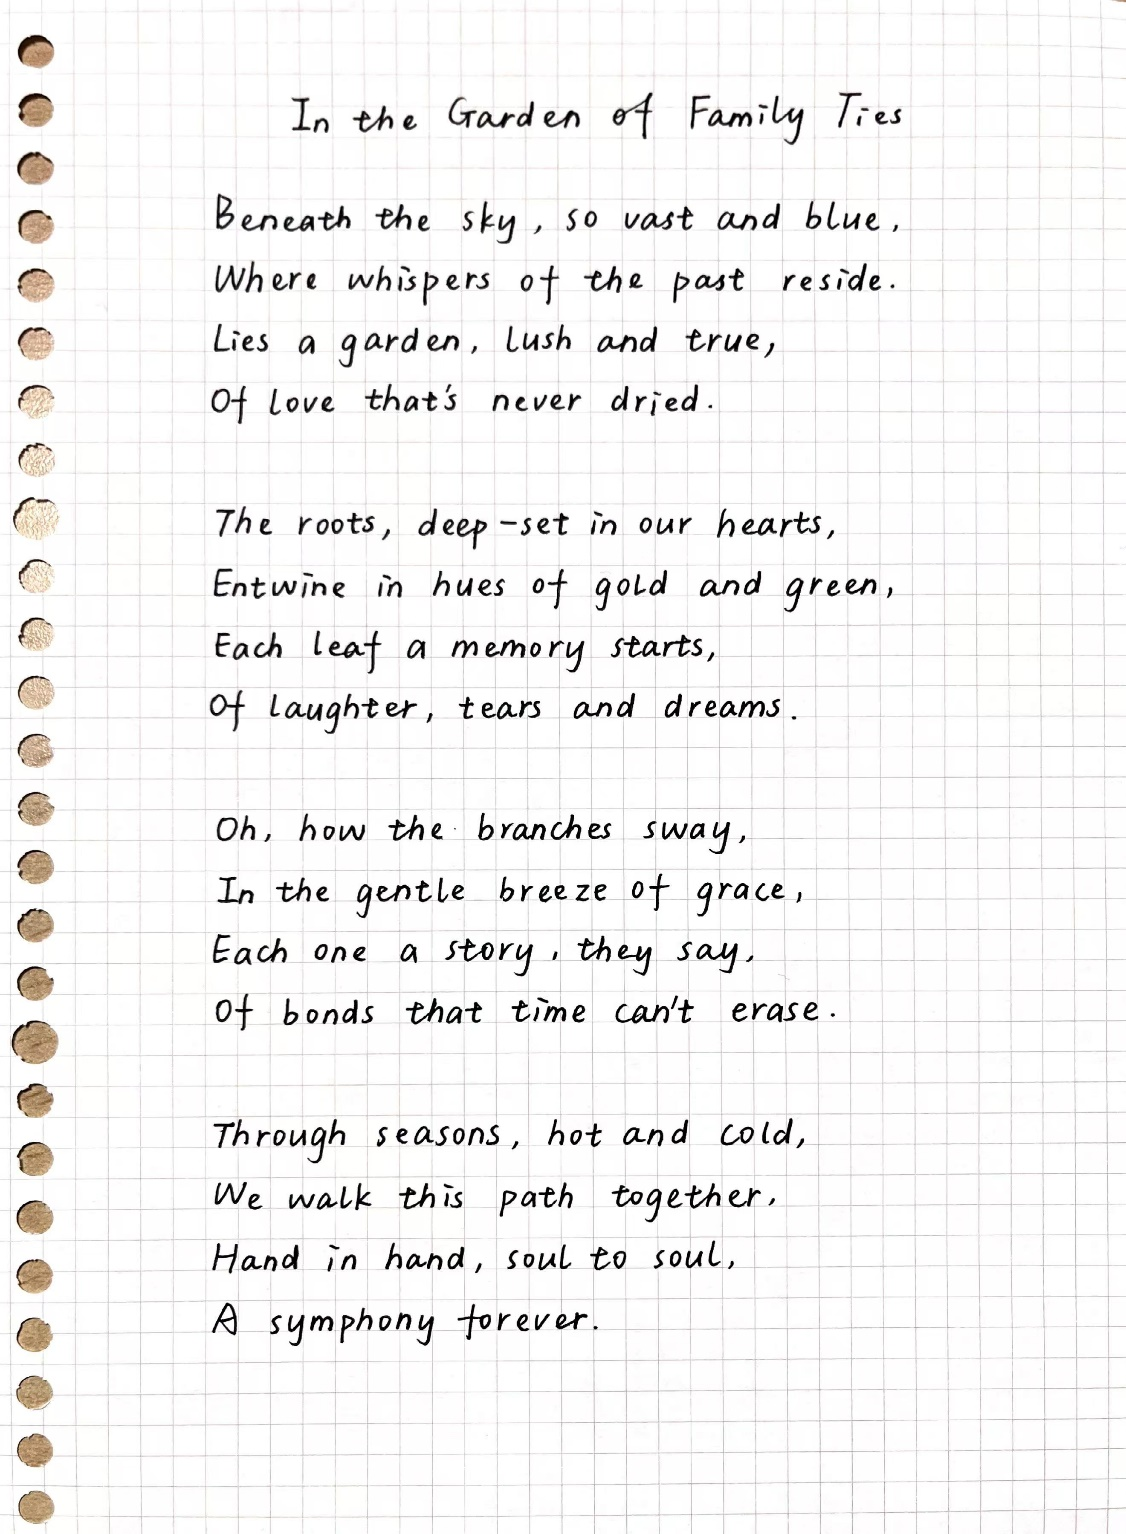 In the Garden of Family Ties
Beneath the sky, so vast and blue,
Where whispers of the past reside.
Lies a garden, lush and true,
Of love that's never dried.
The roots, deep-set in our hearts,
Entwine in hues of gold and green,
Each leaf a memory starts,
Of laughter, tears and dreams.
Oh, how the branches sway,
In the gentle breeze of grace,
Each one a story, they say,
Of bonds that time can't erase.
Through seasons, hot and cold,
We walk this path together,
Hand in hand, soul to soul,
A symphony forever.